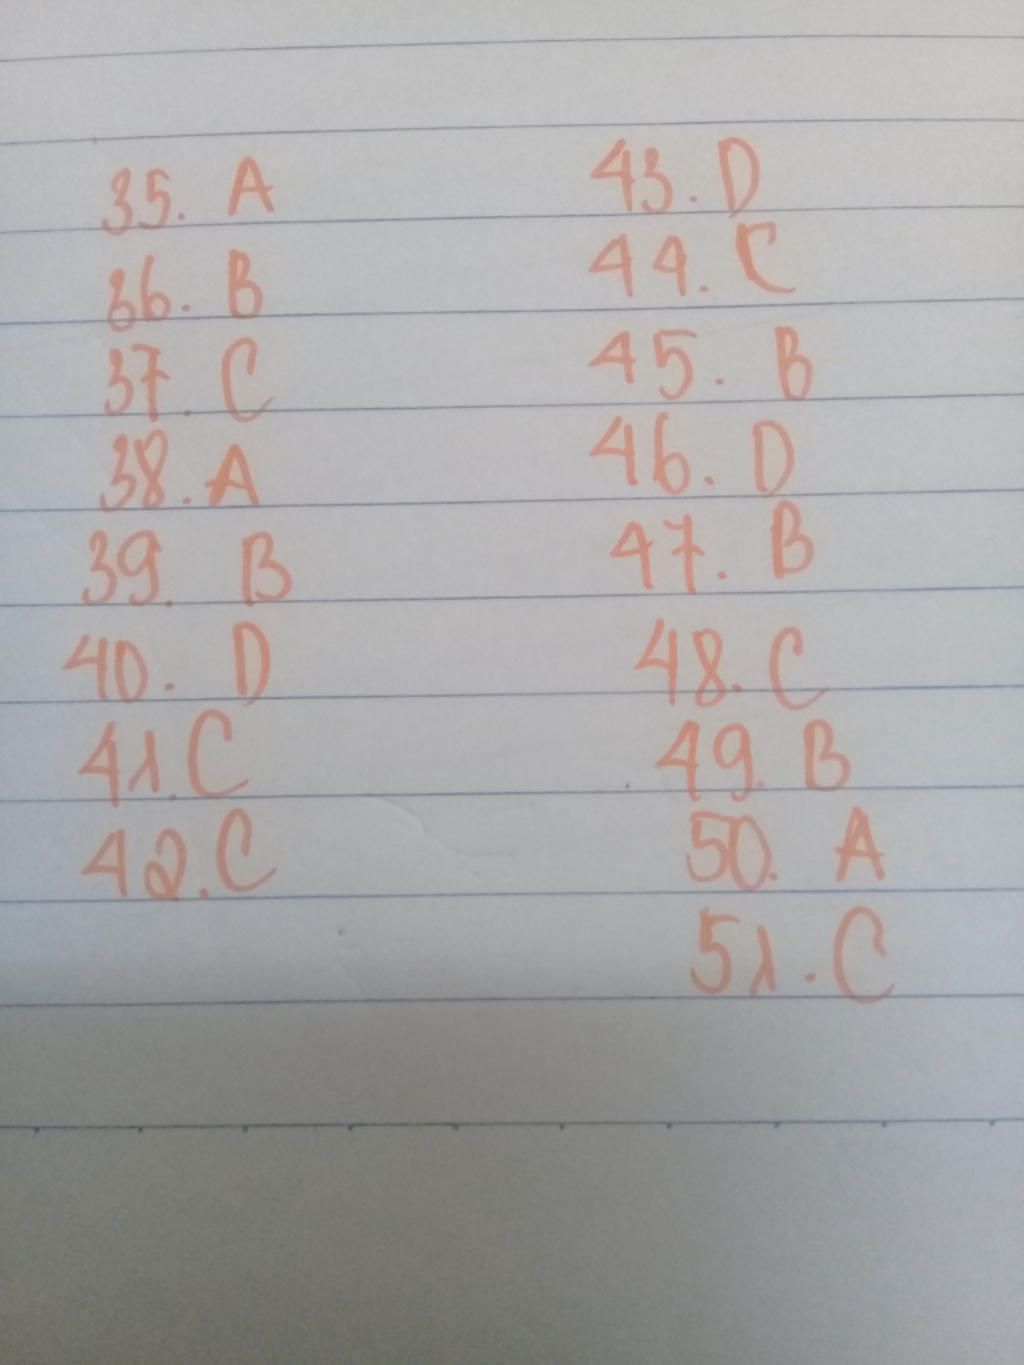 35. A
36. B
37. C
38. A
39. B
40. D
41. C
42. C
43. D
44. C
45. B
46. D
47. B
48. C
49. B
50. A
51. C